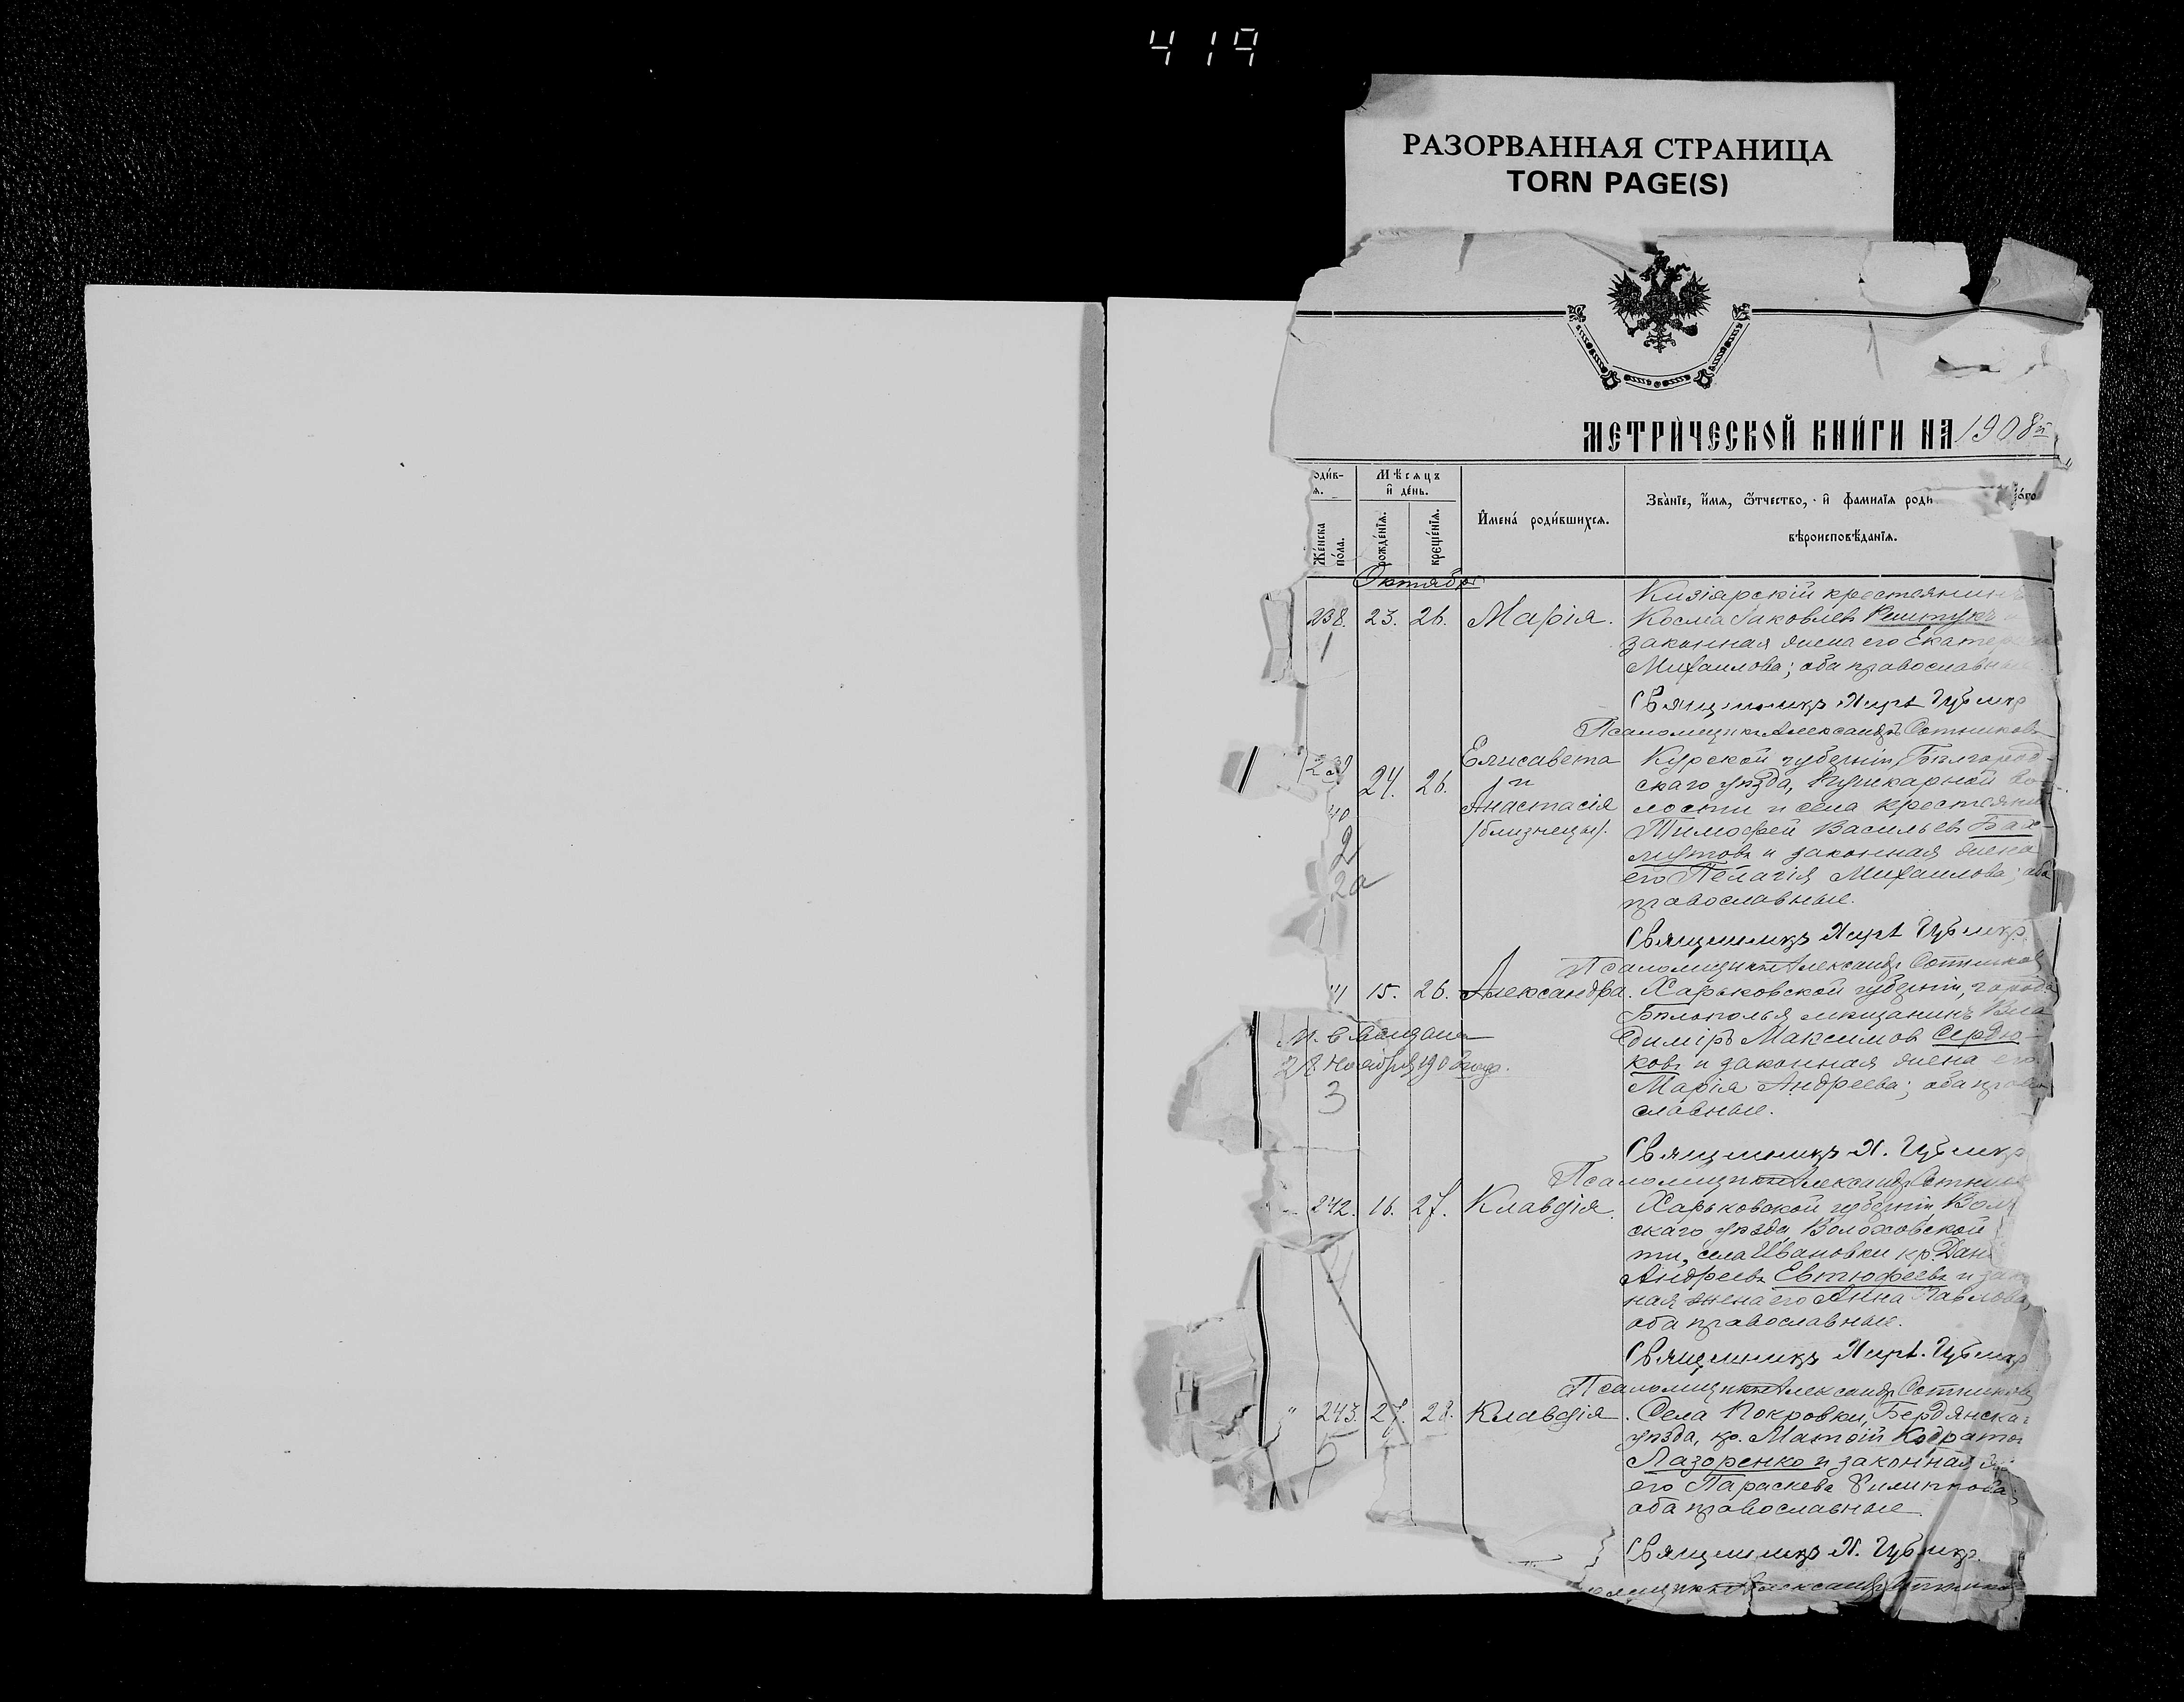 419
РАЗОРВАННАЯ СТРАНИЦА
TORN PAGE(S)
МЕТРИЧЕСКОЙ КНИГИ НА 1908й
одив-
я.
Мѣсяцъ
и день.
Женска
пола.
рожденія.
крещенія.
Имена родившихся.
Званіе, имя, отчество, и фамилія роди
вѣроисповѣданія.
Октябрь
238. 23. 26. Марія.
1
Кизіярскій крестьянинъ
Косма Яковлевъ Решетукъ и
законная жена его Екатер
Михаилова; оба православные
Священникъ
Псаломщикъ Александръ Сотниковъ
239
40
24. 26.
Елисавета
и
Анастасія
/близнецы/.
2
2а
Курской губерніи, Бѣлгород-
скаго уѣзда, Пушкарной во-
лости и села крестьянин
Тимофей Васильевъ Бах-
мутовъ и законная жена
его Пелагія Михаилова; оба
православные.
Священникъ
Псаломщикъ Александръ Сотников
15. 26. Александра.
28 ноября 1908 года.
3
Харьковской губерніи, города
Бѣлополья мѣщанинъ Вла
диміръ Максимовъ Сердю-
ковъ и законная жена его
Марія Андреева; оба право
славные.
Священникъ
Псаломщикъ Александръ
242. 16. 27. Клавдія.
4
Харьковской губерніи Волч
скаго уѣзда, Волоховской
ти, села Ивановки кр. Дан
Андреевъ Евтюфеевъ и зак
ная жена его Анна Павлова,
оба православные.
Священникъ
Псаломщикъ Александръ Сотников
" 243. 27. 28. Клавдія.
5
Села Покровки, Бердянска
уѣзда, кр. Матѳій Кодрато
Лазоренко и законная ж
его Параскева Филиппова;
оба православные
Священникъ
Александръ